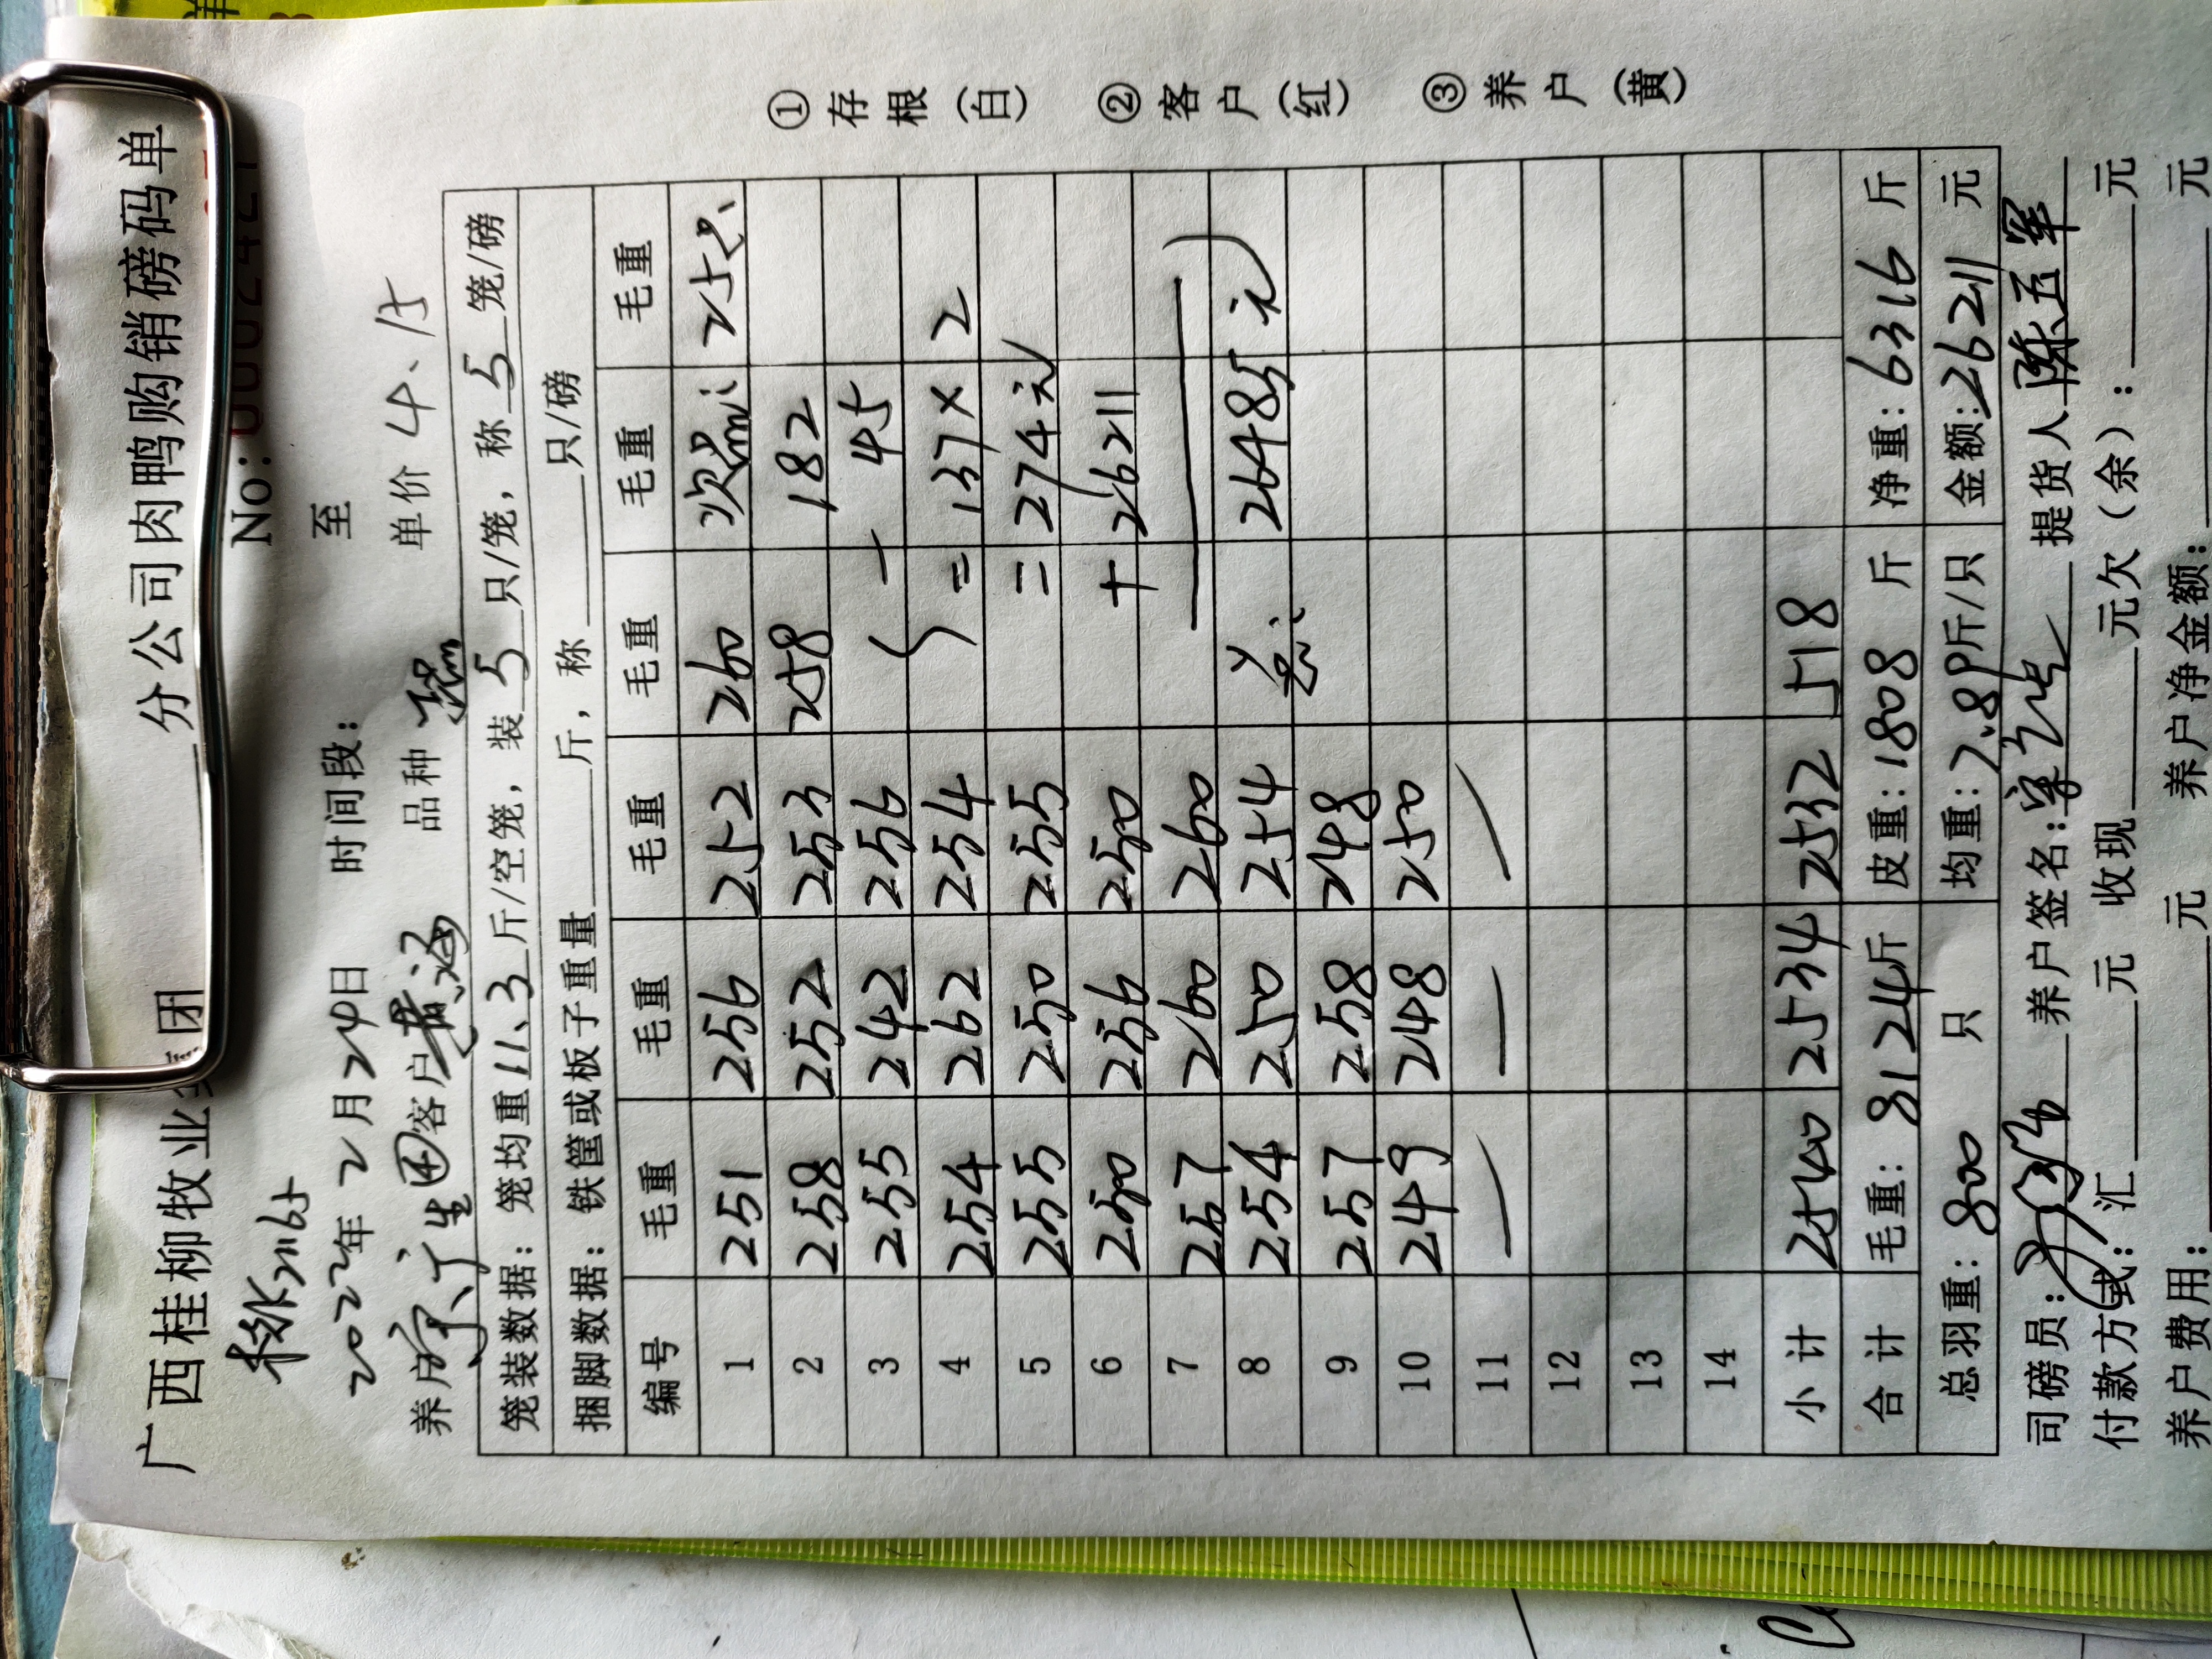 广西桂柳牧业集团 分公司肉鸭购销磅码单
No: 0002421
2022年2月24日 时间段: 至
养户 宁广生 客户 黄海 品种 单价 4.15
笼装数据: 笼均重 11.3 斤/空笼, 装 5 只/笼, 称 5 笼/磅
捆脚数据: 铁筐或板子重量 斤, 称 只/磅
编号 毛重 毛重 毛重 毛重 毛重 毛重
1 251 256 252 260 次品: 25只
2 258 252 253 258 182
3 255 242 256 - 45
4 254 262 254 = 137×2
5 255 250 255 = 274元
6 250 256 250 + 26211
7 257 260 260
8 254 250 254 共: 26485元
9 257 258 248
10 249 248 250
11 — — —
12
13
14
小计 2540 2534 2532 518
合计 毛重: 8124斤 皮重: 1808 斤 净重: 6316 斤
总羽重: 800 只 均重: 7.89斤/只 金额: 26211 元
司磅员: 养户签名: 提货人 陈五军
付款方式: 汇 元 收现 元欠(余): 元
养户费用: 元 养户净金额: 元
①存根(白) ②客户(红) ③养户(黄)